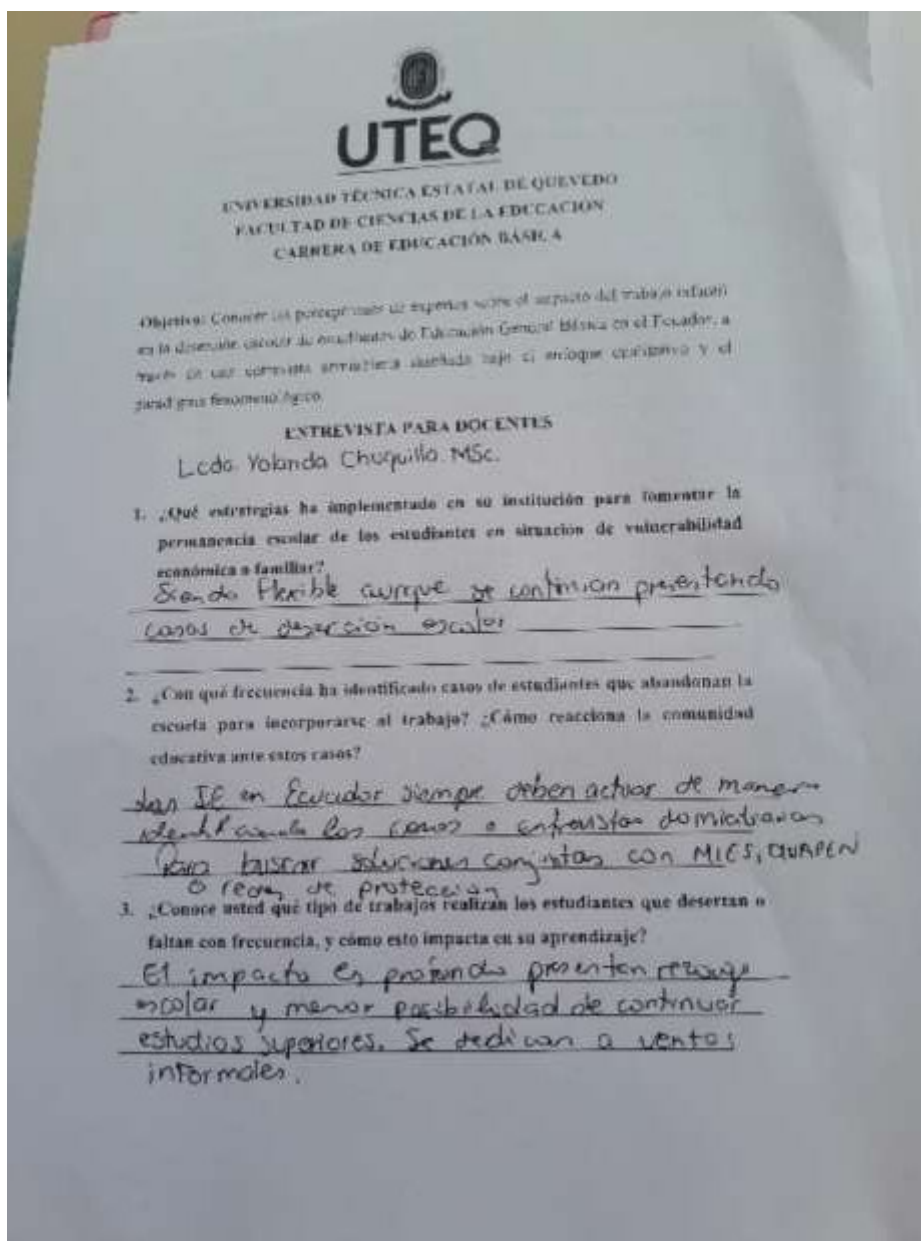 UTEQ
UNIVERSIDAD TÉCNICA ESTATAL DE QUEVEDO
FACULTAD DE CIENCIAS DE LA EDUCACIÓN
CARRERA DE EDUCACIÓN BÁSICA
Objetivo: Conocer las percepciones de expertos sobre el impacto del trabajo infantil
en la deserción escolar de estudiantes de Educación General Básica en el Ecuador, a
través de una entrevista diseñada bajo el enfoque cualitativo y el
paradigma fenomenológico.
ENTREVISTA PARA DOCENTES
Lcda. Yolanda Chuquilla. MSc.
1. ¿Qué estrategias ha implementado en su institución para fomentar la
permanencia escolar de los estudiantes en situación de vulnerabilidad
económica o familiar?
Siendo flexible aunque se continúan presentando
casos de deserción escolar
2. ¿Con qué frecuencia ha identificado casos de estudiantes que abandonan la
escuela para incorporarse al trabajo? ¿Cómo reacciona la comunidad
educativa ante estos casos?
IE en Ecuador siempre deben actuar de manera
los casos
Para buscar soluciones conjuntas con MIES,
o redes de protección
3. ¿Conoce usted qué tipo de trabajos realizan los estudiantes que desertan o
faltan con frecuencia, y cómo esto impacta en su aprendizaje?
El impacto es profundo presentan rezago
escolar y menor posibilidad de continuar
estudios superiores. Se dedican a ventas
informales.